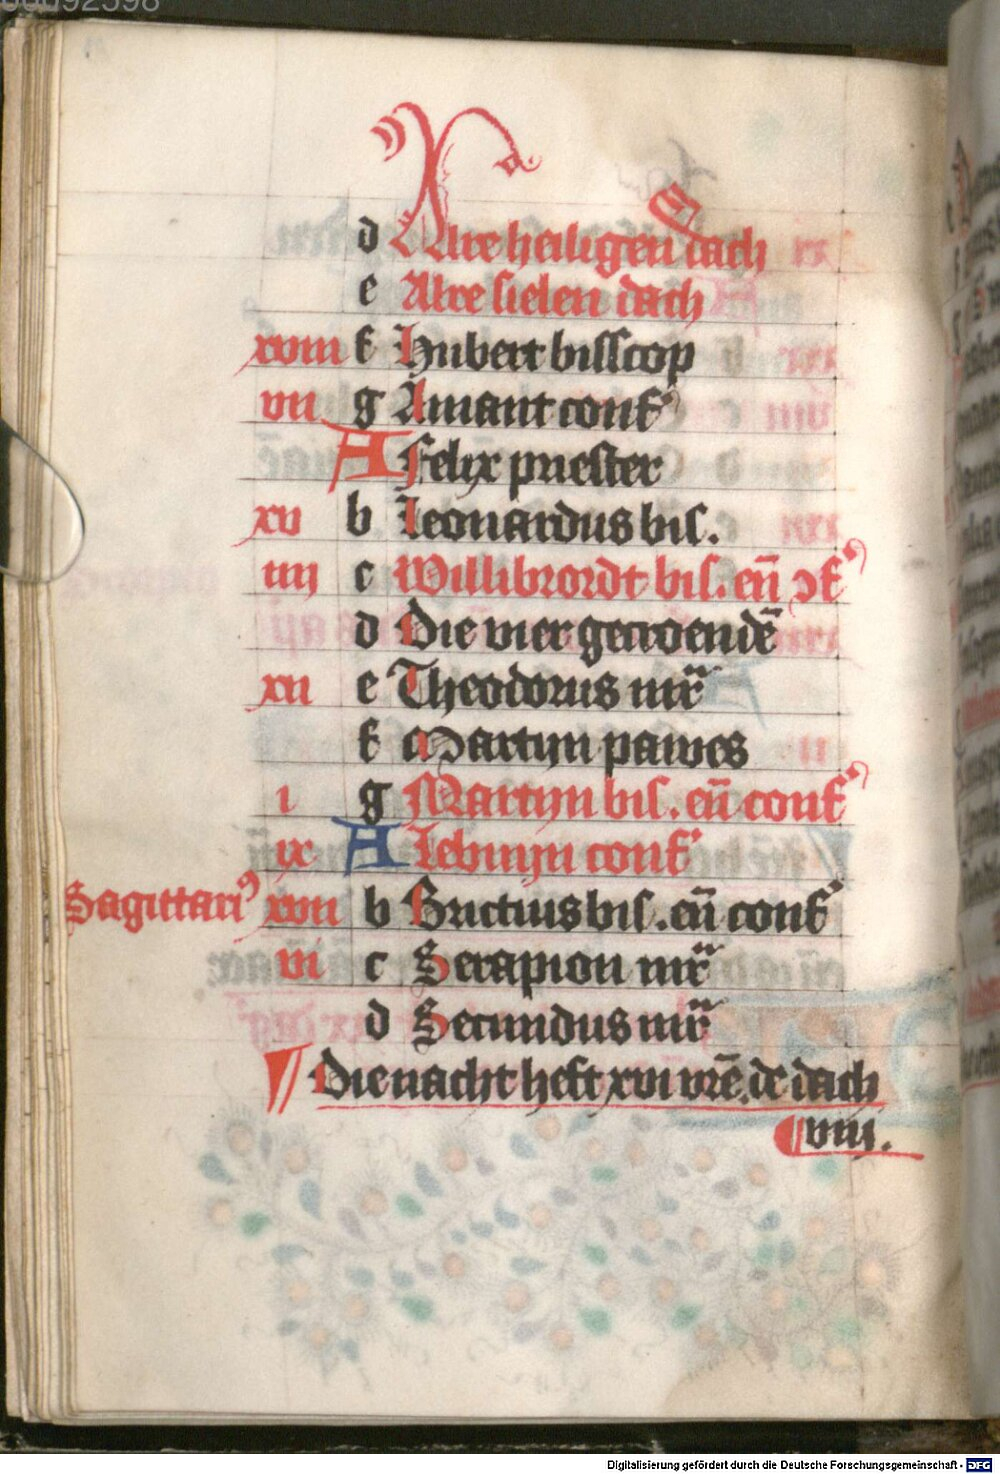 d Alre heiligen dach
e Alre sielen dach
xviii f Hubert bisscop
vii g Amant conf'
A Felix priester
xv b Leonardus bis.
iiii c Willibrordt bis. en̄ ↄf'
d Die vier gecroendē
xii e Theodorus mr̄
f Martyn pawes
i g Martyn bis. en̄ conf'
ix A Lebuyn conf'
Sagittariꝰ xvii b Brictius bis. en̄ conf'
vi c Serapion mr̄
d Secundus mr̄
¶ Die nacht heft xvi vrē. de dach
¶ viii.
Digitalisierung gefördert durch die Deutsche Forschungsgemeinschaft - DFG